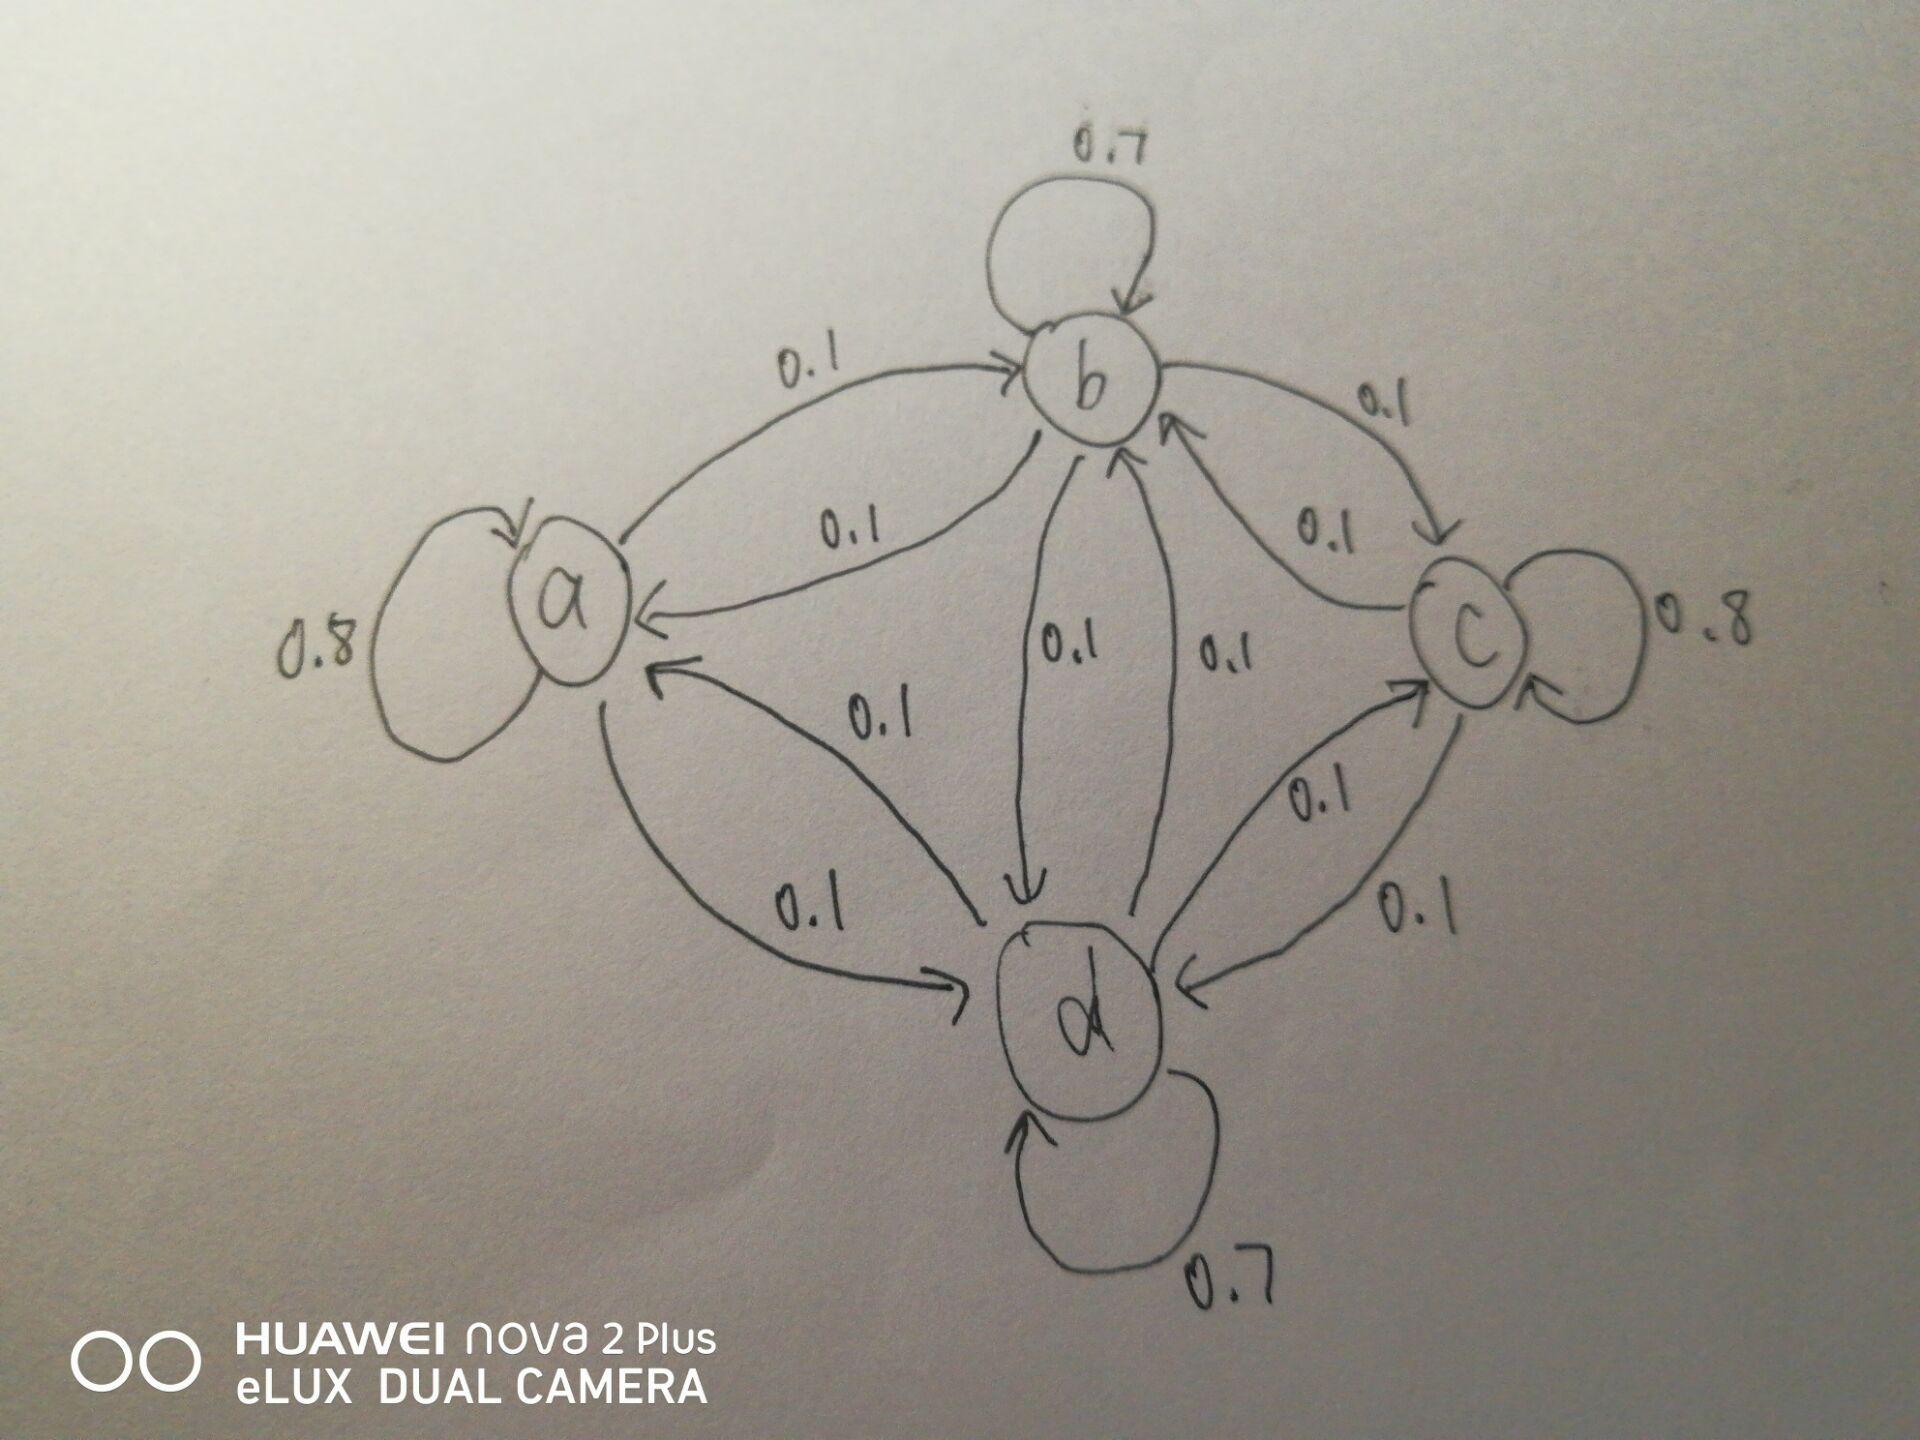 0.7
b
0.1
0.1
0.1
0.1
a
0.8
c
0.8
0.1
0.1
0.1
0.1
0.1
0.1
d
0.7
HUAWEI nova 2 Plus
eLUX DUAL CAMERA